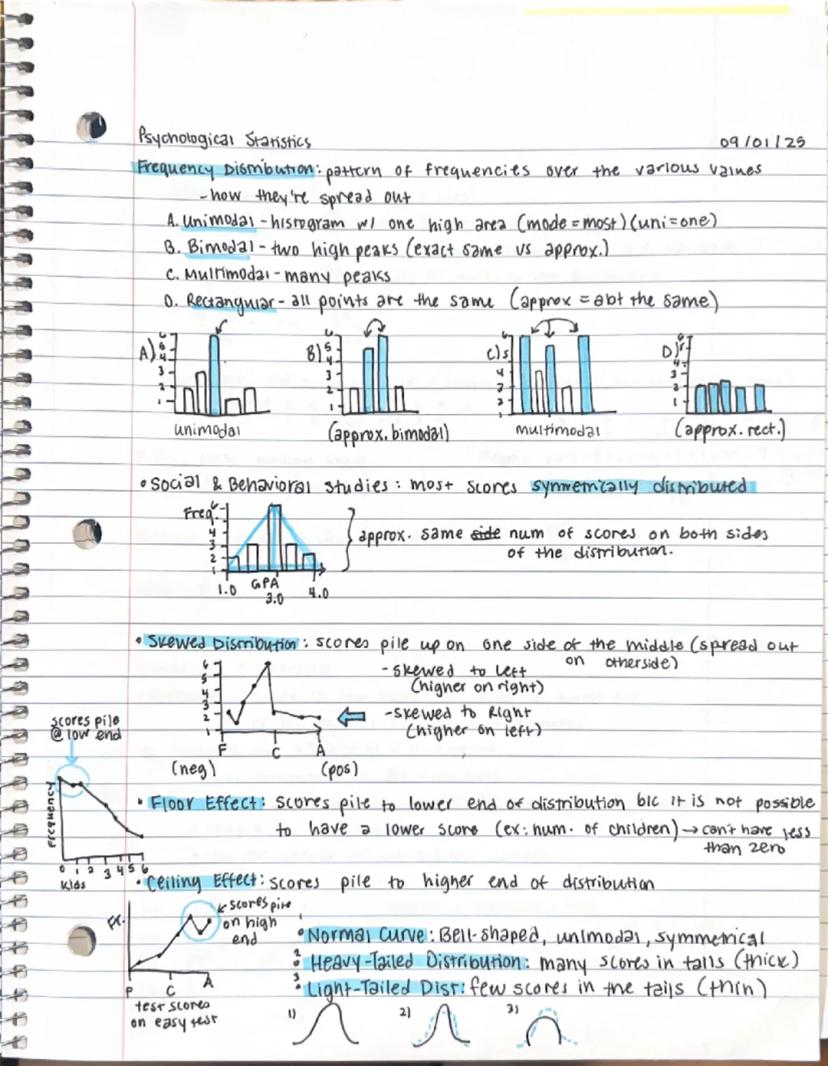 Psychological Statistics 09/01/25
Frequency Distribution: pattern of frequencies over the various values
- how they're spread out
A. Unimodal - histogram w/ one high area (mode = most) (uni = one)
B. Bimodal - two high peaks (exact same vs approx.)
C. Multimodal - many peaks
D. Rectangular - all points are the same (approx = abt the same)
A) 6 5 4 3 2 1
unimodal
B) 6 5 4 3 2 1
(approx. bimodal)
C) 6 5 4 3 2 1
multimodal
D) 6 5 4 3 2 1
(approx. rect.)
• Social & Behavioral studies: most scores symmetrically distributed
Freq. 6 5 4 3 2 1
1.0 GPA 3.0 4.0
approx. same side num of scores on both sides
of the distribution.
• Skewed Distribution: scores pile up on one side of the middle (spread out
on otherside)
6 5 4 3 2 1
F C A
(neg) (pos)
- skewed to left
(higher on right)
- skewed to Right
(higher on left)
scores pile
@ low end
Frequency
0 1 2 3 4 5 6
Kids
• Floor Effect: scores pile to lower end of distribution b/c it is not possible
to have a lower score (ex: num. of children) → can't have less
than zero
• Ceiling Effect: scores pile to higher end of distribution
Fr.
scores pile
on high
end
F C A
test scores
on easy test
1 • Normal Curve: Bell-shaped, unimodal, symmetrical
2 • Heavy-Tailed Distribution: many scores in tails (thick)
3 • Light-Tailed Dist: few scores in the tails (thin)
1) 2) 3)